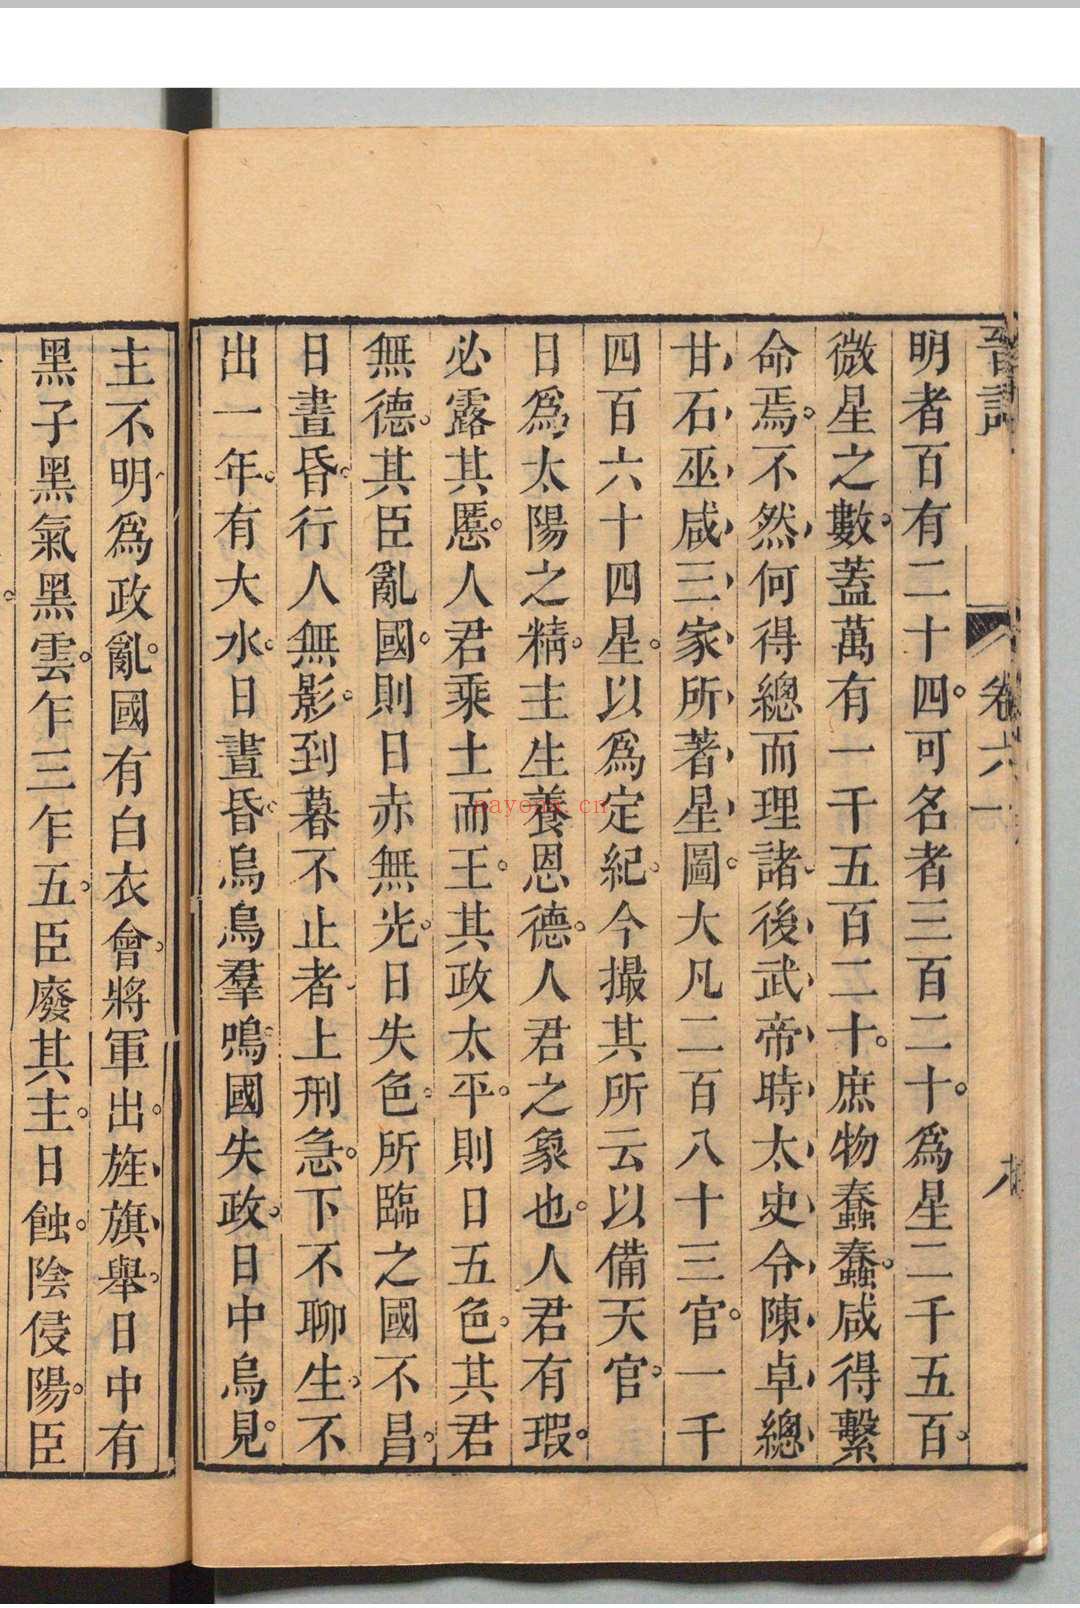 明者百有二十四。可名者三百二十。爲星二千五百。
微星之數。蓋萬有一千五百二十。庶物蠢蠢。咸得繫
命焉。不然、何得總而理諸、後武帝時、太史令陳卓總
甘、石、巫咸、三家所著星圖。大凡二百八十三官。一千
四百六十四星。以爲定紀。今撮其所云以備天官。
日爲太陽之精。主生養恩德。人君之象也。人君有瑕。
必露其慝。人君乘土而王。其政太平。則日五色。其君
無德。其臣亂國。則日赤無光。日失色。所臨之國不昌。
日晝昏。行人無影。到暮不止者、上刑急。下不聊生。不
出一年。有大水。日晝昏。烏鳥羣鳴。國失政。日中烏見。
主不明。爲政亂。國有白衣會。將軍出。旌旗舉。日中有
黑子黑氣黑雲。乍三乍五。臣廢其主。日蝕。陰侵陽。臣
卷六
nayona.cn